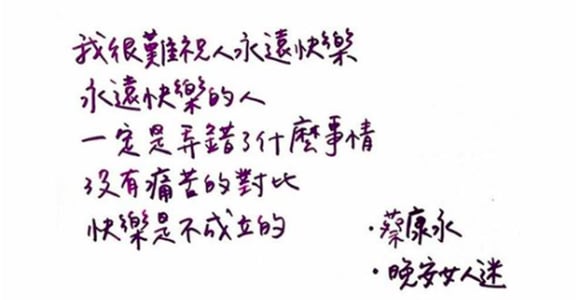 我很難祝人永遠快樂
永遠快樂的人
一定是弄錯了什麼事情
沒有痛苦的對比
快樂是不成立的
·蔡康永
·晚安女人迷